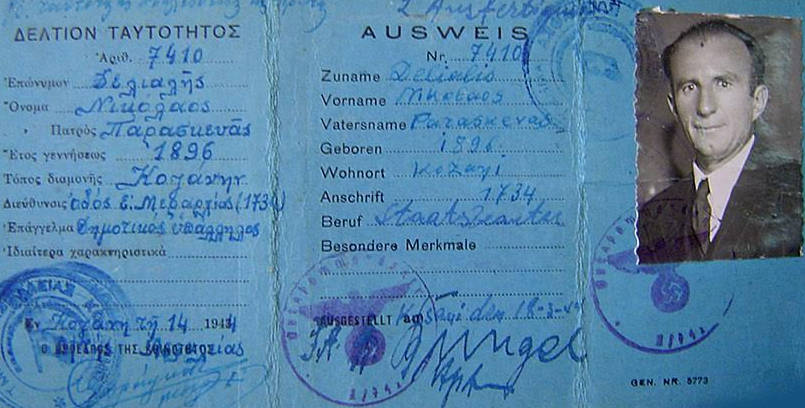 ΔΕΛΤΙΟΝ ΤΑΥΤΟΤΗΤΟΣ
Ἀριθ. 7410
Ἐπώνυμον Δελιαλῆς
Ὄνομα Νικόλαος
Πατρὸς Παρασκευᾶς
Ἔτος γεννήσεως 1896
Τόπος διαμονῆς Κοζάνην
Διεύθυνσις ὁδὸς (1734)
Ἐπάγγελμα δημοτικὸς ὑπάλληλος
Ἰδιαίτερα χαρακτηριστικὰ
Ἐν Κοζάνῃ τῇ 14 1944
Ο ΠΡΟΕΔΡΟΣ ΤΗΣ ΚΟΙΝΟΤΗΤΟΣ
2 Ausfertigung
AUSWEIS
Nr. 7410
Zuname Delialis
Vorname Nikolaos
Vatersname Paraskevas
Geboren 1896
Wohnort Kozani
Anschrift 1734
Beruf Staatsbeamter
Besondere Merkmale
AUSGESTELLT am Kosani den 18-3-44
GEN. NR. 5773